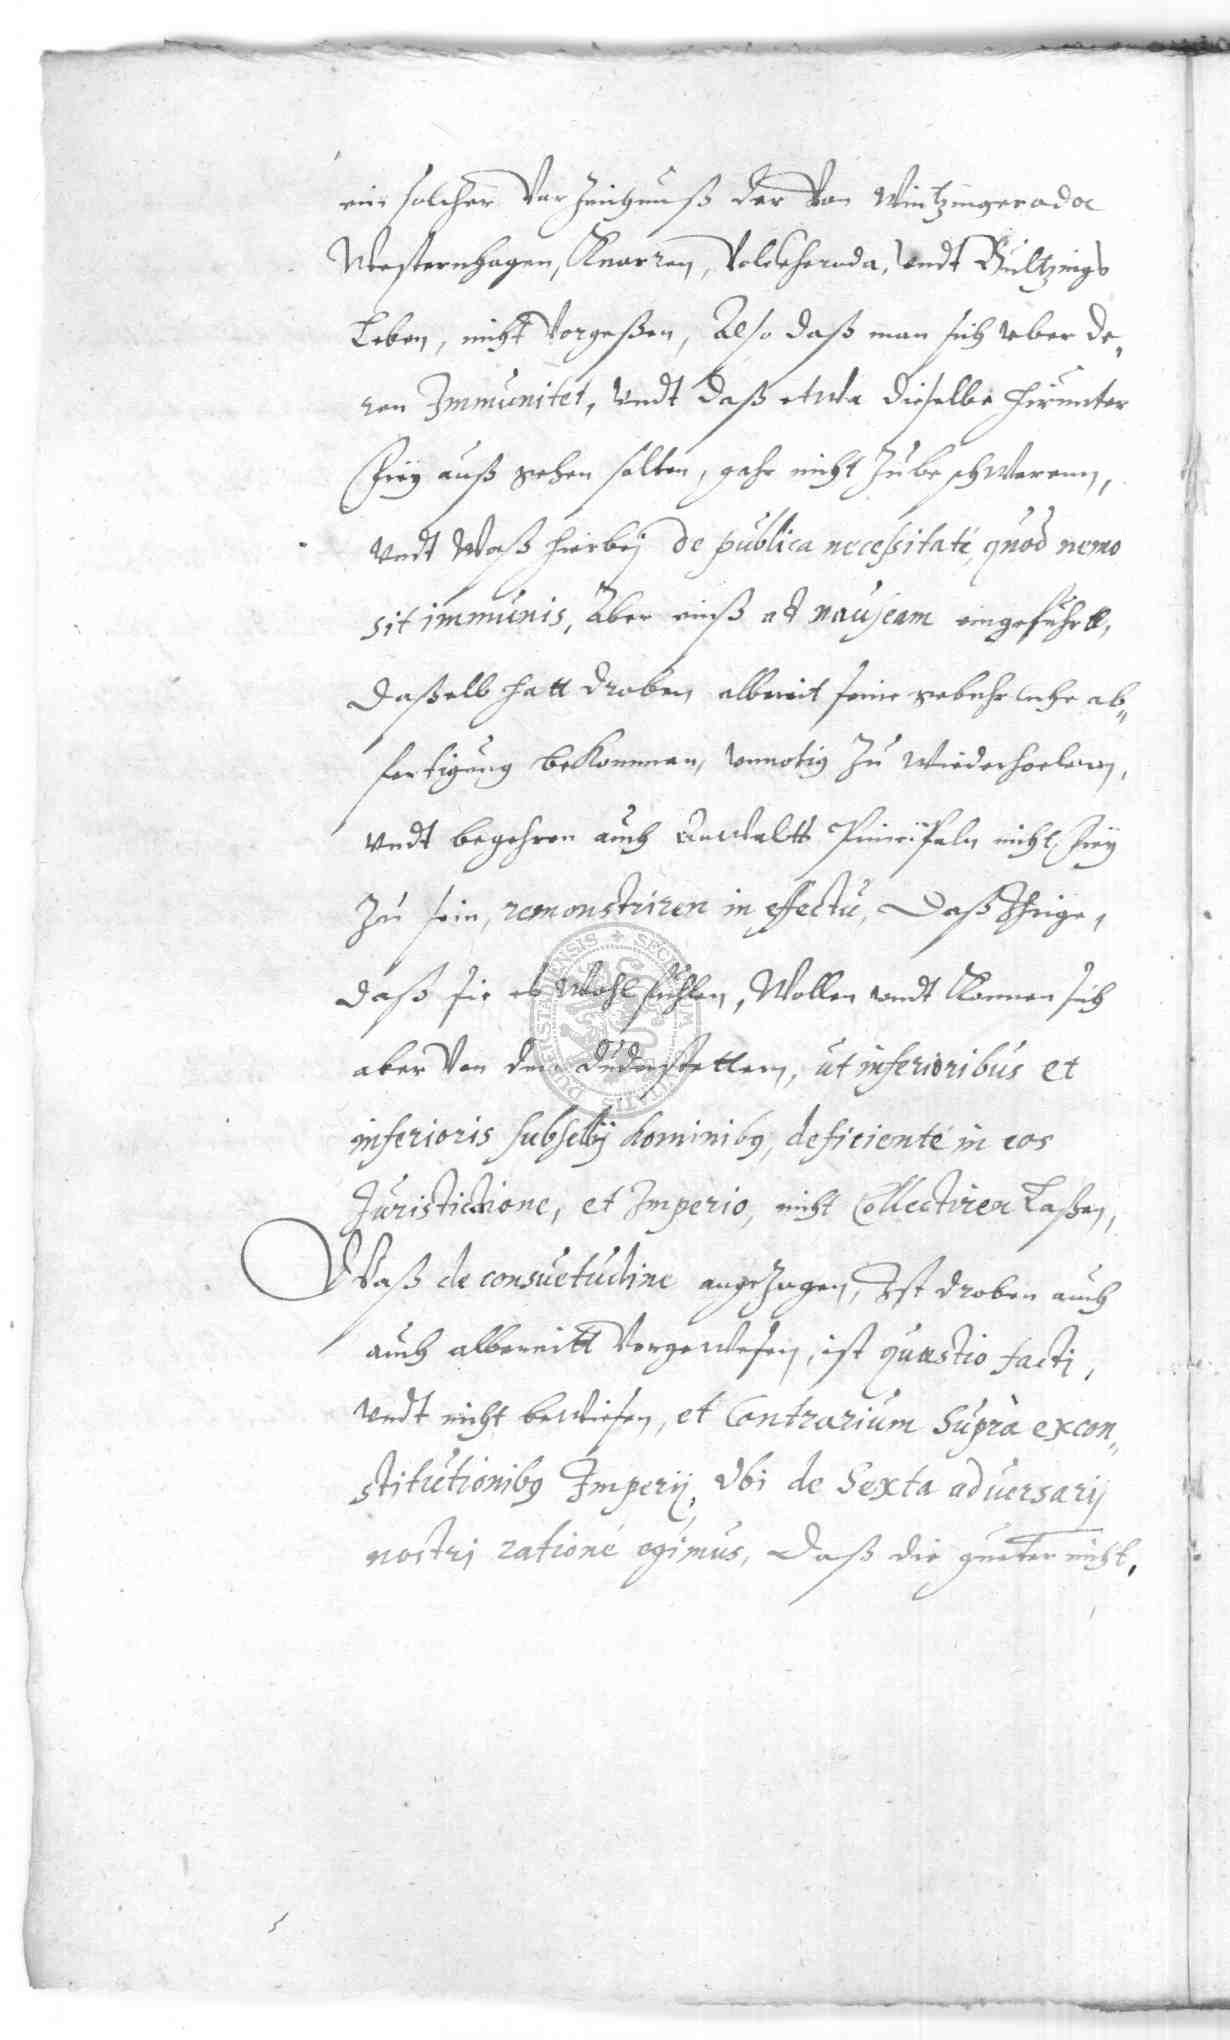 ein solcher Verzeichnuß der Von Wintzingerodae
Westernhagen, Knorren, Volckeheroda, Vndt Bultzings
Leben, nicht Vorgeßen, Also daß man sich vber de„
ren Immunitet, Vndt daß etwa dieselbe hirunter
frey auß gehen solten, gahr nicht Zu beschwerenn,
Vndt Waß hierbey de publica necessitate, quod nemo
sit immunis, Aber einß ad nauseam eingefuhrtt,
Daßelb hatt droben albereit seine gebuhrliche ab„
fertigung bekommen, vnnotig Zu wiederhoelenn,
Vndt begehren auch Anwaldts Principaln nicht, frey
Zu sein, remonstriren in effectu, Daß Ihrige,
daß sie es Wohl fuhlen, Wollen vndt Konnen sich
aber Von den Duderstettern, ut inferioribus et
inferioris subselÿ hominibq, deficiente in eos
Juristictione, et Imperio, nicht Collectiren Laßen,
Waß de consuetudine angeZogen, Ist droben auch
auch albereitt Vorgewesen, ist quaestio facti,
Vndt nicht bewiesen, et Contrarium Supra ex con„
stitutionibq Imperij, Vbi de Sexta adversarij
nostri ratione egimus, Daß die gueter nicht,
SECRETUM CIVITATIS DUDERSTADENSIS